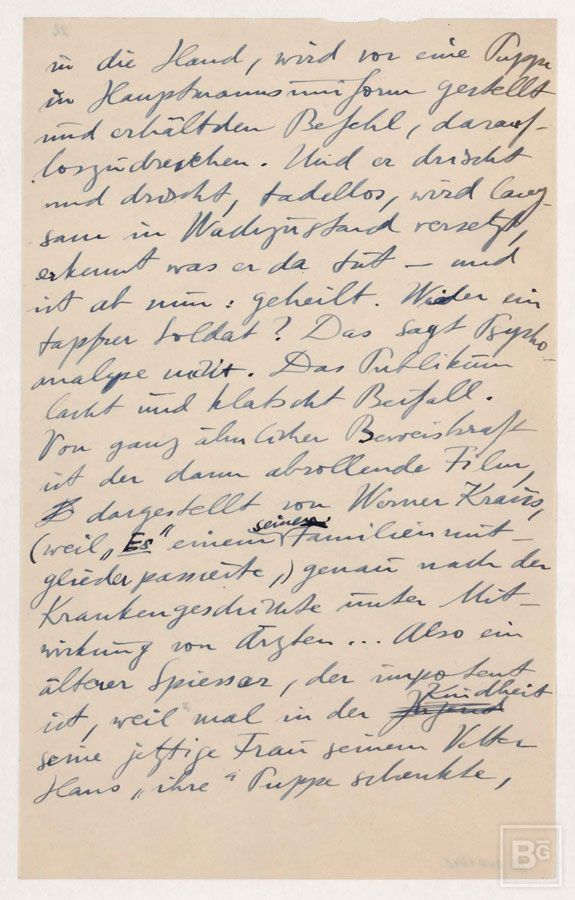 in die Hand, wird vor eine Puppe
in Hauptmannsuniform gestellt
und erhält den Befehl, darauf-
loszudreschen. Und er drischt
und drischt, tadellos, wird lang-
sam in Wachzustand versetzt,
erkennt was er da tut – und
ist ab nun: geheilt. Wieder ein
tapfrer Soldat? Das sagt Psycho-
analyse nicht. Das Publikum
lacht und klatscht Beifall.
Von ganz ähnlicher Beweiskraft
ist der dann abrollende Film,
dargestellt von Werner Krauss,
(weil „Es“ einem seiner Familienmit-
glieder passierte,) genau nach der
Krankengeschichte unter Mit-
wirkung von Ärzten... Also ein
älterer Spiesser, der impotent
ist, weil mal in der Jugend Kindheit
seine jetzige Frau seinem Vetter
Hans „ihre“ Puppe schenkte,
BG